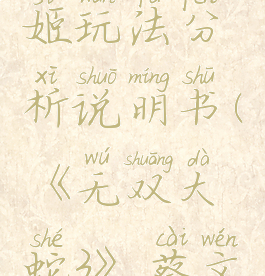 姬玩法分
xī shuō míng shū
析说明书(
wú shuāng dà
《无双大
shé cài wén
蛇3》 蔡文